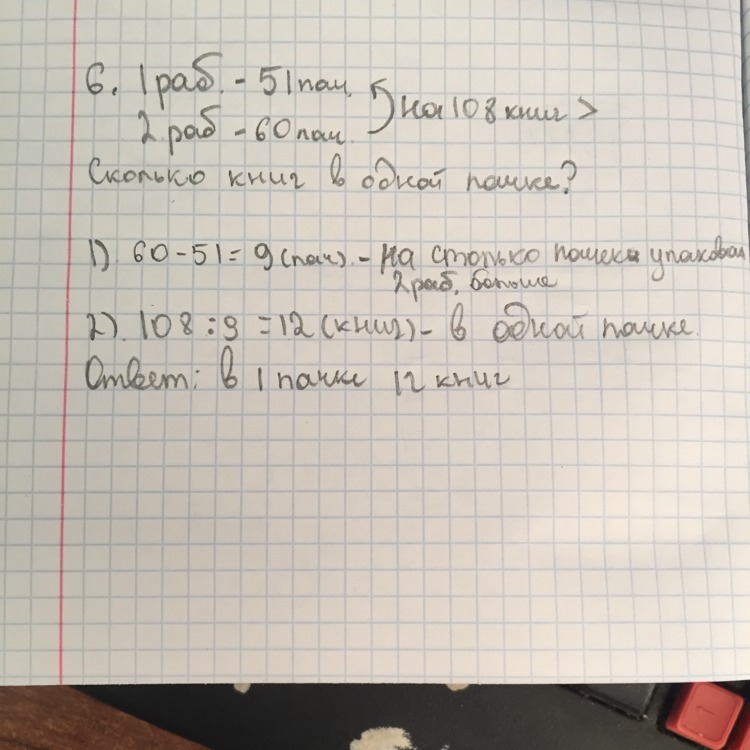 6. 1 раб. - 51 пач.
2 раб - 60 пач. на 108 книг >
Сколько книг в одной пачке?
1). 60 - 51 = 9 (пач). - на столько пачек упаковал
2 раб. больше
2). 108 : 9 = 12 (книг) - в одной пачке.
Ответ: в 1 пачке 12 книг